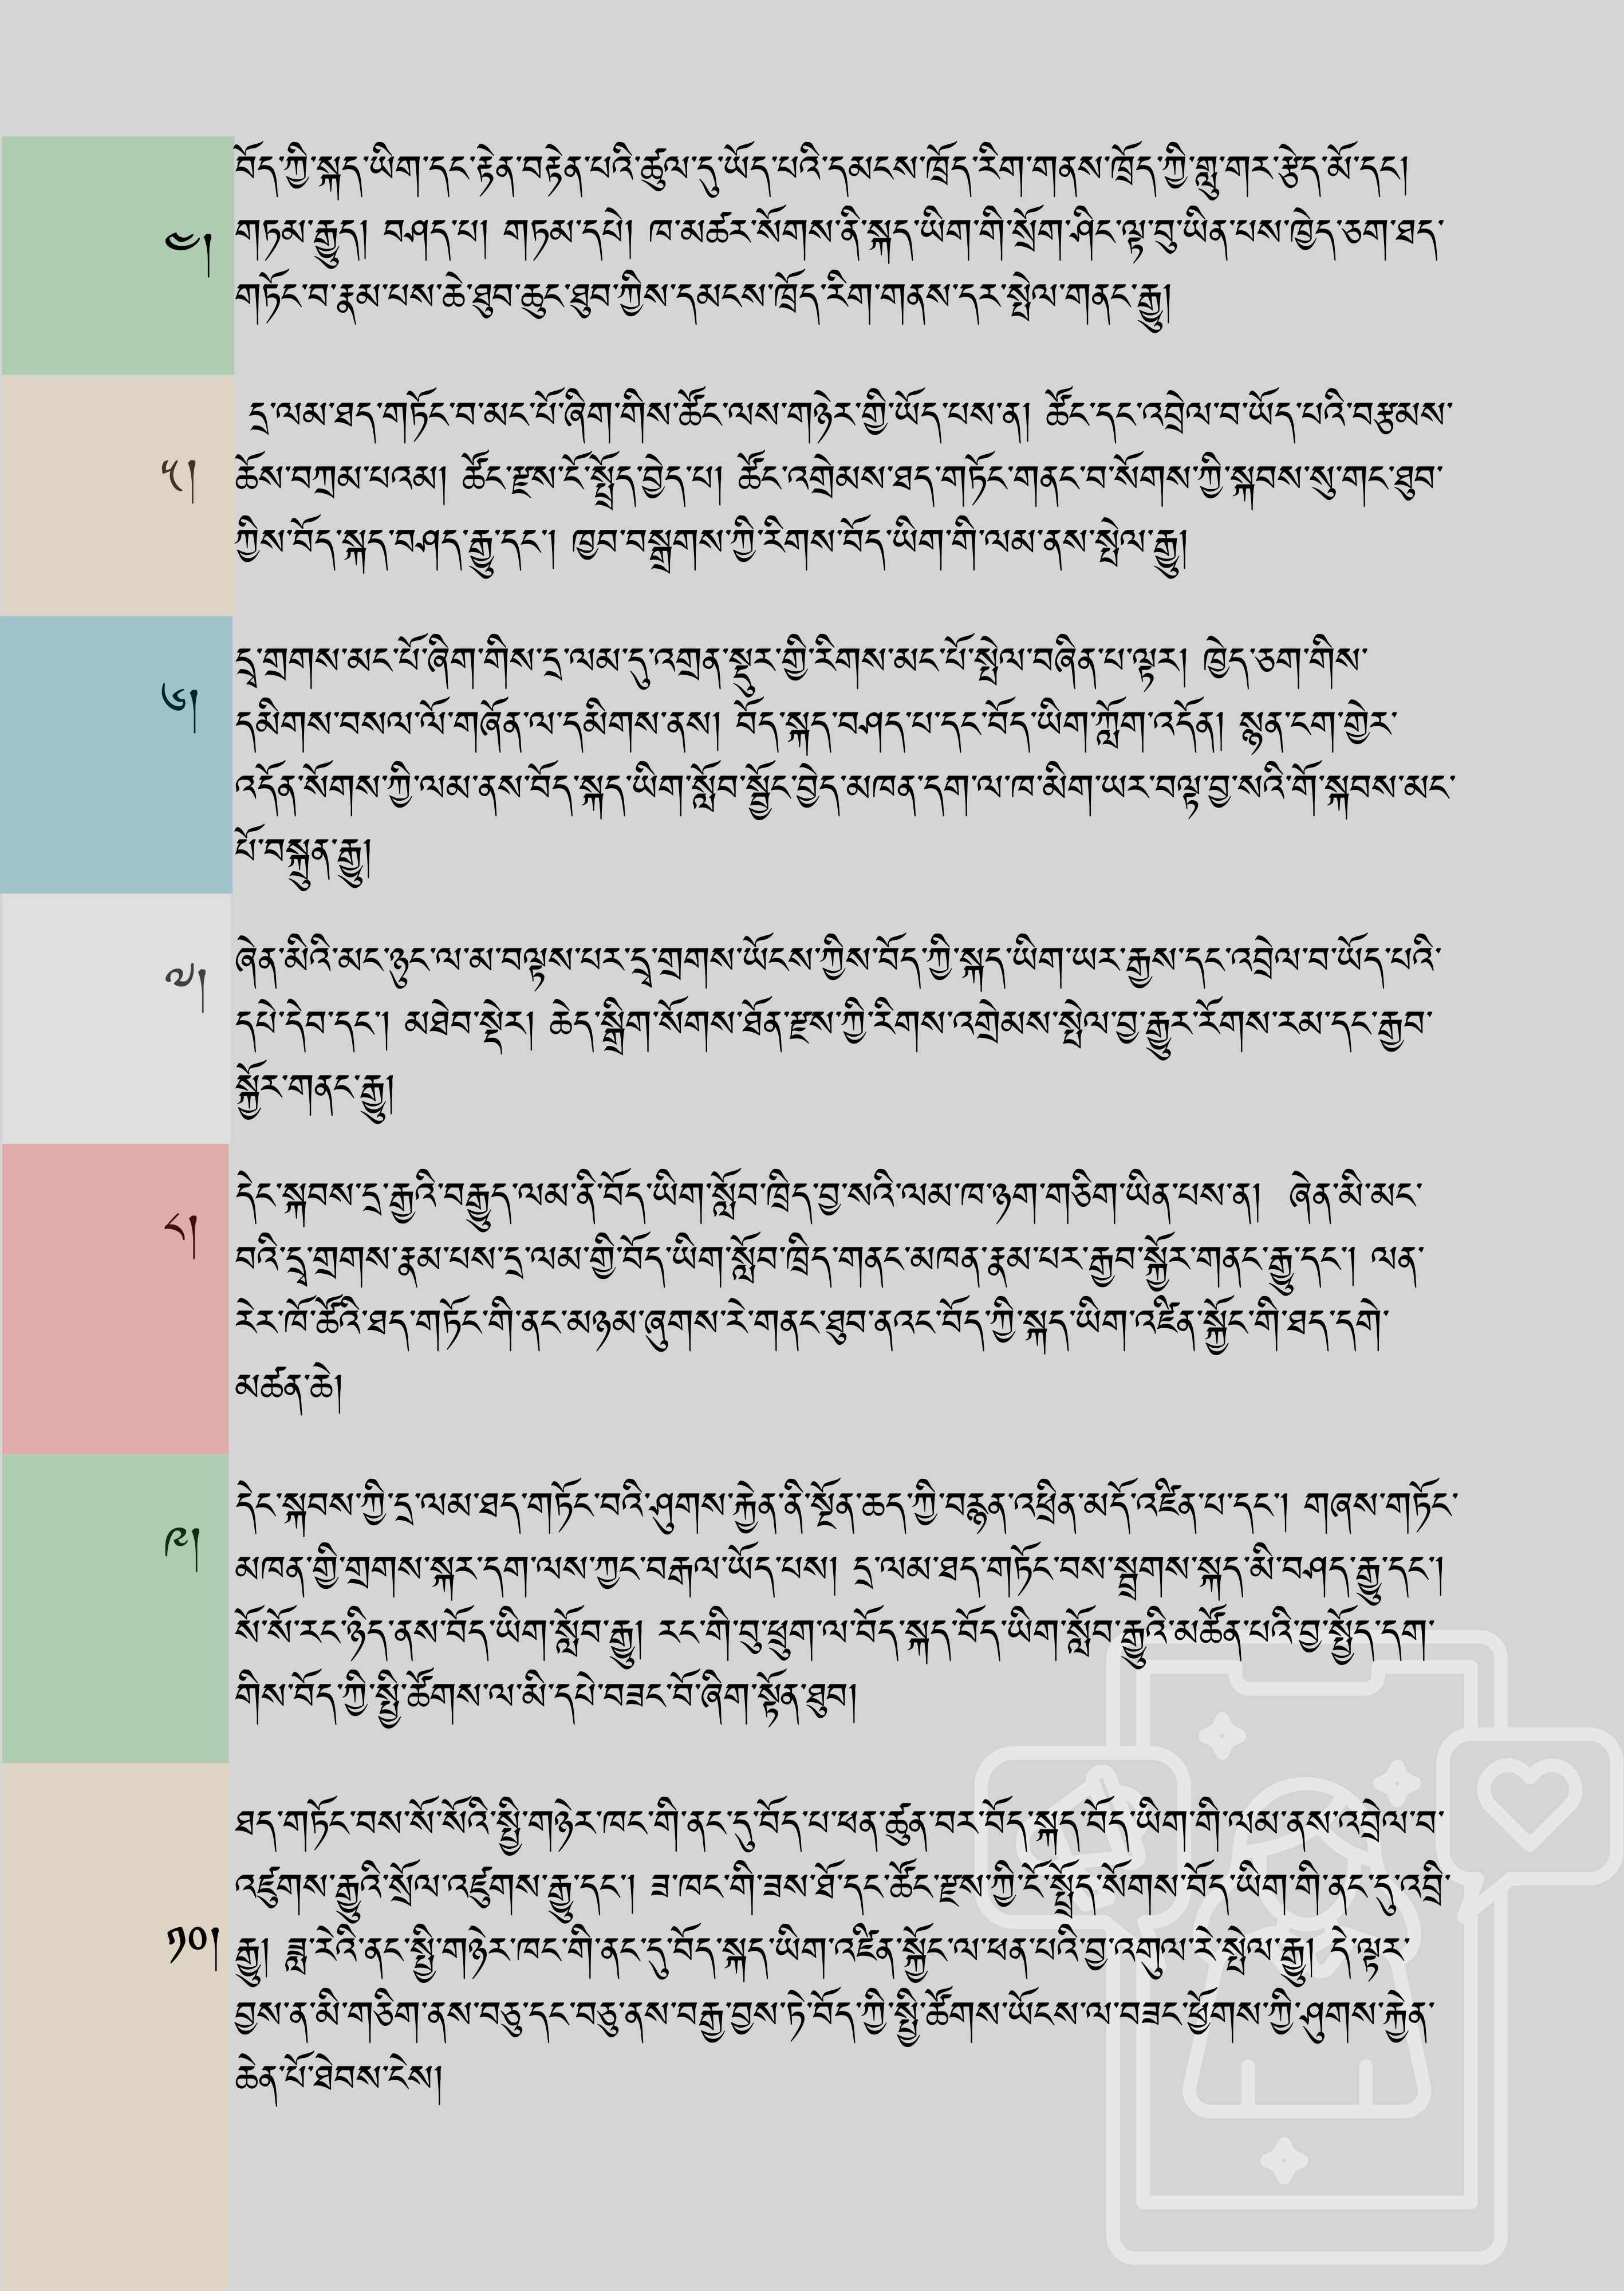 ༤། བོད་ཀྱི་སྐད་ཡིག་དང་རྟེན་བརྟེན་པའི་ཚུལ་དུ་ཡོད་པའི་དམངས་ཁྲོད་རིག་གནས་ཁྲོད་ཀྱི་གླུ་གར་རྩེད་མོ་དང།
གཏམ་རྒྱུད། བཤད་པ། གཏམ་དཔེ། ཁ་མཚར་སོགས་ནི་སྐད་ཡིག་གི་སྲོག་ཤིང་ལྟ་བུ་ཡིན་པས་ཁྱེད་ཅག་ཐད་
གཏོང་བ་རྣམ་པས་ཆེ་ཐུབ་ཆུང་ཐུབ་ཀྱིས་དམངས་ཁྲོད་རིག་གནས་དར་སྤེལ་གནང་རྒྱུ།
༥། དྲ་ལམ་ཐད་གཏོང་བ་མང་པོ་ཞིག་གིས་ཚོང་ལས་གཉེར་གྱི་ཡོད་པས་ན། ཚོང་དང་འབྲེལ་བ་ཡོད་པའི་བརྩམས་
ཆོས་བཀྲམ་པའམ། ཚོང་རྫས་ངོ་སྤྲོད་བྱེད་པ། ཚོང་འགྲེམས་ཐད་གཏོང་གནང་བ་སོགས་ཀྱི་སྐབས་སུ་གང་ཐུབ་
ཀྱིས་བོད་སྐད་བཤད་རྒྱུ་དང་། ཁྱབ་བསྒྲགས་ཀྱི་རིགས་བོད་ཡིག་གི་ལམ་ནས་སྤེལ་རྒྱུ།
༦། དྭ་གྲགས་མང་པོ་ཞིག་གིས་དྲ་ལམ་དུ་འགྲན་སྡུར་གྱི་རིགས་མང་པོ་སྤེལ་བཞིན་པ་ལྟར། ཁྱེད་ཅག་གིས་
དམིགས་བསལ་ལོ་གཞོན་ལ་དམིགས་ནས། བོད་སྐད་བཤད་པ་དང་བོད་ཡིག་ཀློག་འདོན། སྙན་ངག་གྱེར་
འདོན་སོགས་ཀྱི་ལམ་ནས་བོད་སྐད་ཡིག་སློབ་སྦྱོང་བྱེད་མཁན་དག་ལ་ཁ་མིག་ཡར་བལྟ་བྱ་སའི་གོ་སྐབས་མང་
པོ་བསྐྲུན་རྒྱུ།
༧། ཞེན་མིའི་མང་ཉུང་ལ་མ་བལྟས་པར་དྭ་གྲགས་ཡོངས་ཀྱིས་བོད་ཀྱི་སྐད་ཡིག་ཡར་རྒྱས་དང་འབྲེལ་བ་ཡོད་པའི་
དཔེ་དེབ་དང་། མཐེབ་སྡེར། ཆེད་སྒྲིག་སོགས་ཐོན་རྫས་ཀྱི་རིགས་འགྲེམས་སྤེལ་བྱ་རྒྱུར་རོགས་རམ་དང་རྒྱབ་
སྐྱོར་གནང་རྒྱུ།
༨། དེང་སྐབས་དྲ་རྒྱའི་བརྒྱུད་ལམ་ནི་བོད་ཡིག་སློབ་ཁྲིད་བྱ་སའི་ལམ་ཁ་ཉག་གཅིག་ཡིན་པས་ན། ཞེན་མི་མང་
བའི་དྭ་གྲགས་རྣམ་པས་དྲ་ལམ་གྱི་བོད་ཡིག་སློབ་ཁྲིད་གནང་མཁན་རྣམ་པར་རྒྱབ་སྐྱོར་གནང་རྒྱུ་དང་། ལན་
རེར་ཁོ་ཚོའི་ཐད་གཏོང་གི་ནང་མཉམ་ཞུགས་རེ་གནང་ཐུབ་ནའང་བོད་ཀྱི་སྐད་ཡིག་འཛིན་སྐྱོང་གི་ཐད་དགེ་
མཚན་ཆེ།
༩། དེང་སྐབས་ཀྱི་དྲ་ལམ་ཐད་གཏོང་བའི་ཤུགས་རྐྱེན་ནི་སྔོན་ཆད་ཀྱི་བརྙན་འཕྲིན་མདོ་འཛིན་པ་དང་། གཞས་གཏོང་
མཁན་གྱི་གྲགས་སྐར་དག་ལས་ཀྱང་བརྒལ་ཡོད་པས། དྲ་ལམ་ཐད་གཏོང་བས་སྦྲགས་སྐད་མི་བཤད་རྒྱུ་དང་།
སོ་སོ་རང་ཉིད་ནས་བོད་ཡིག་སློབ་རྒྱུ། རང་གི་བུ་ཕྲུག་ལ་བོད་སྐད་བོད་ཡིག་སློབ་རྒྱུའི་མཚོན་པའི་བྱ་སྤྱོད་དག་
གིས་བོད་ཀྱི་སྤྱི་ཚོགས་ལ་མི་དཔེ་བཟང་བོ་ཞིག་སྟོན་ཐུབ།
ཐད་གཏོང་བས་སོ་སོའི་སྤྱི་གཉེར་ཁང་གི་ནང་དུ་བོད་པ་ཕན་ཚུན་བར་བོད་སྐད་བོད་ཡིག་གི་ལམ་ནས་འབྲེལ་བ་
འཛུགས་རྒྱུའི་སྲོལ་འཛུགས་རྒྱུ་དང་། ཟ་ཁང་གི་ཟས་ཐོ་དང་ཚོང་རྫས་ཀྱི་ངོ་སྤྲོད་སོགས་བོད་ཡིག་གི་ནང་དུ་འབྲི་
༡༠། རྒྱུ། ཟླ་རེའི་ནང་སྤྱི་གཉེར་ཁང་གི་ནང་དུ་བོད་སྐད་ཡིག་འཛིན་སྐྱོང་ལ་ཕན་པའི་བྱ་འགུལ་རེ་སྤེལ་རྒྱུ། དེ་ལྟར་
བྱས་ན་མི་གཅིག་ནས་བཅུ་དང་བཅུ་ནས་བརྒྱ་བྱས་ཏེ་བོད་ཀྱི་སྤྱི་ཚོགས་ཡོངས་ལ་བཟང་ཕྱོགས་ཀྱི་ཤུགས་རྐྱེན་
ཆེན་པོ་ཐེབས་ངེས།